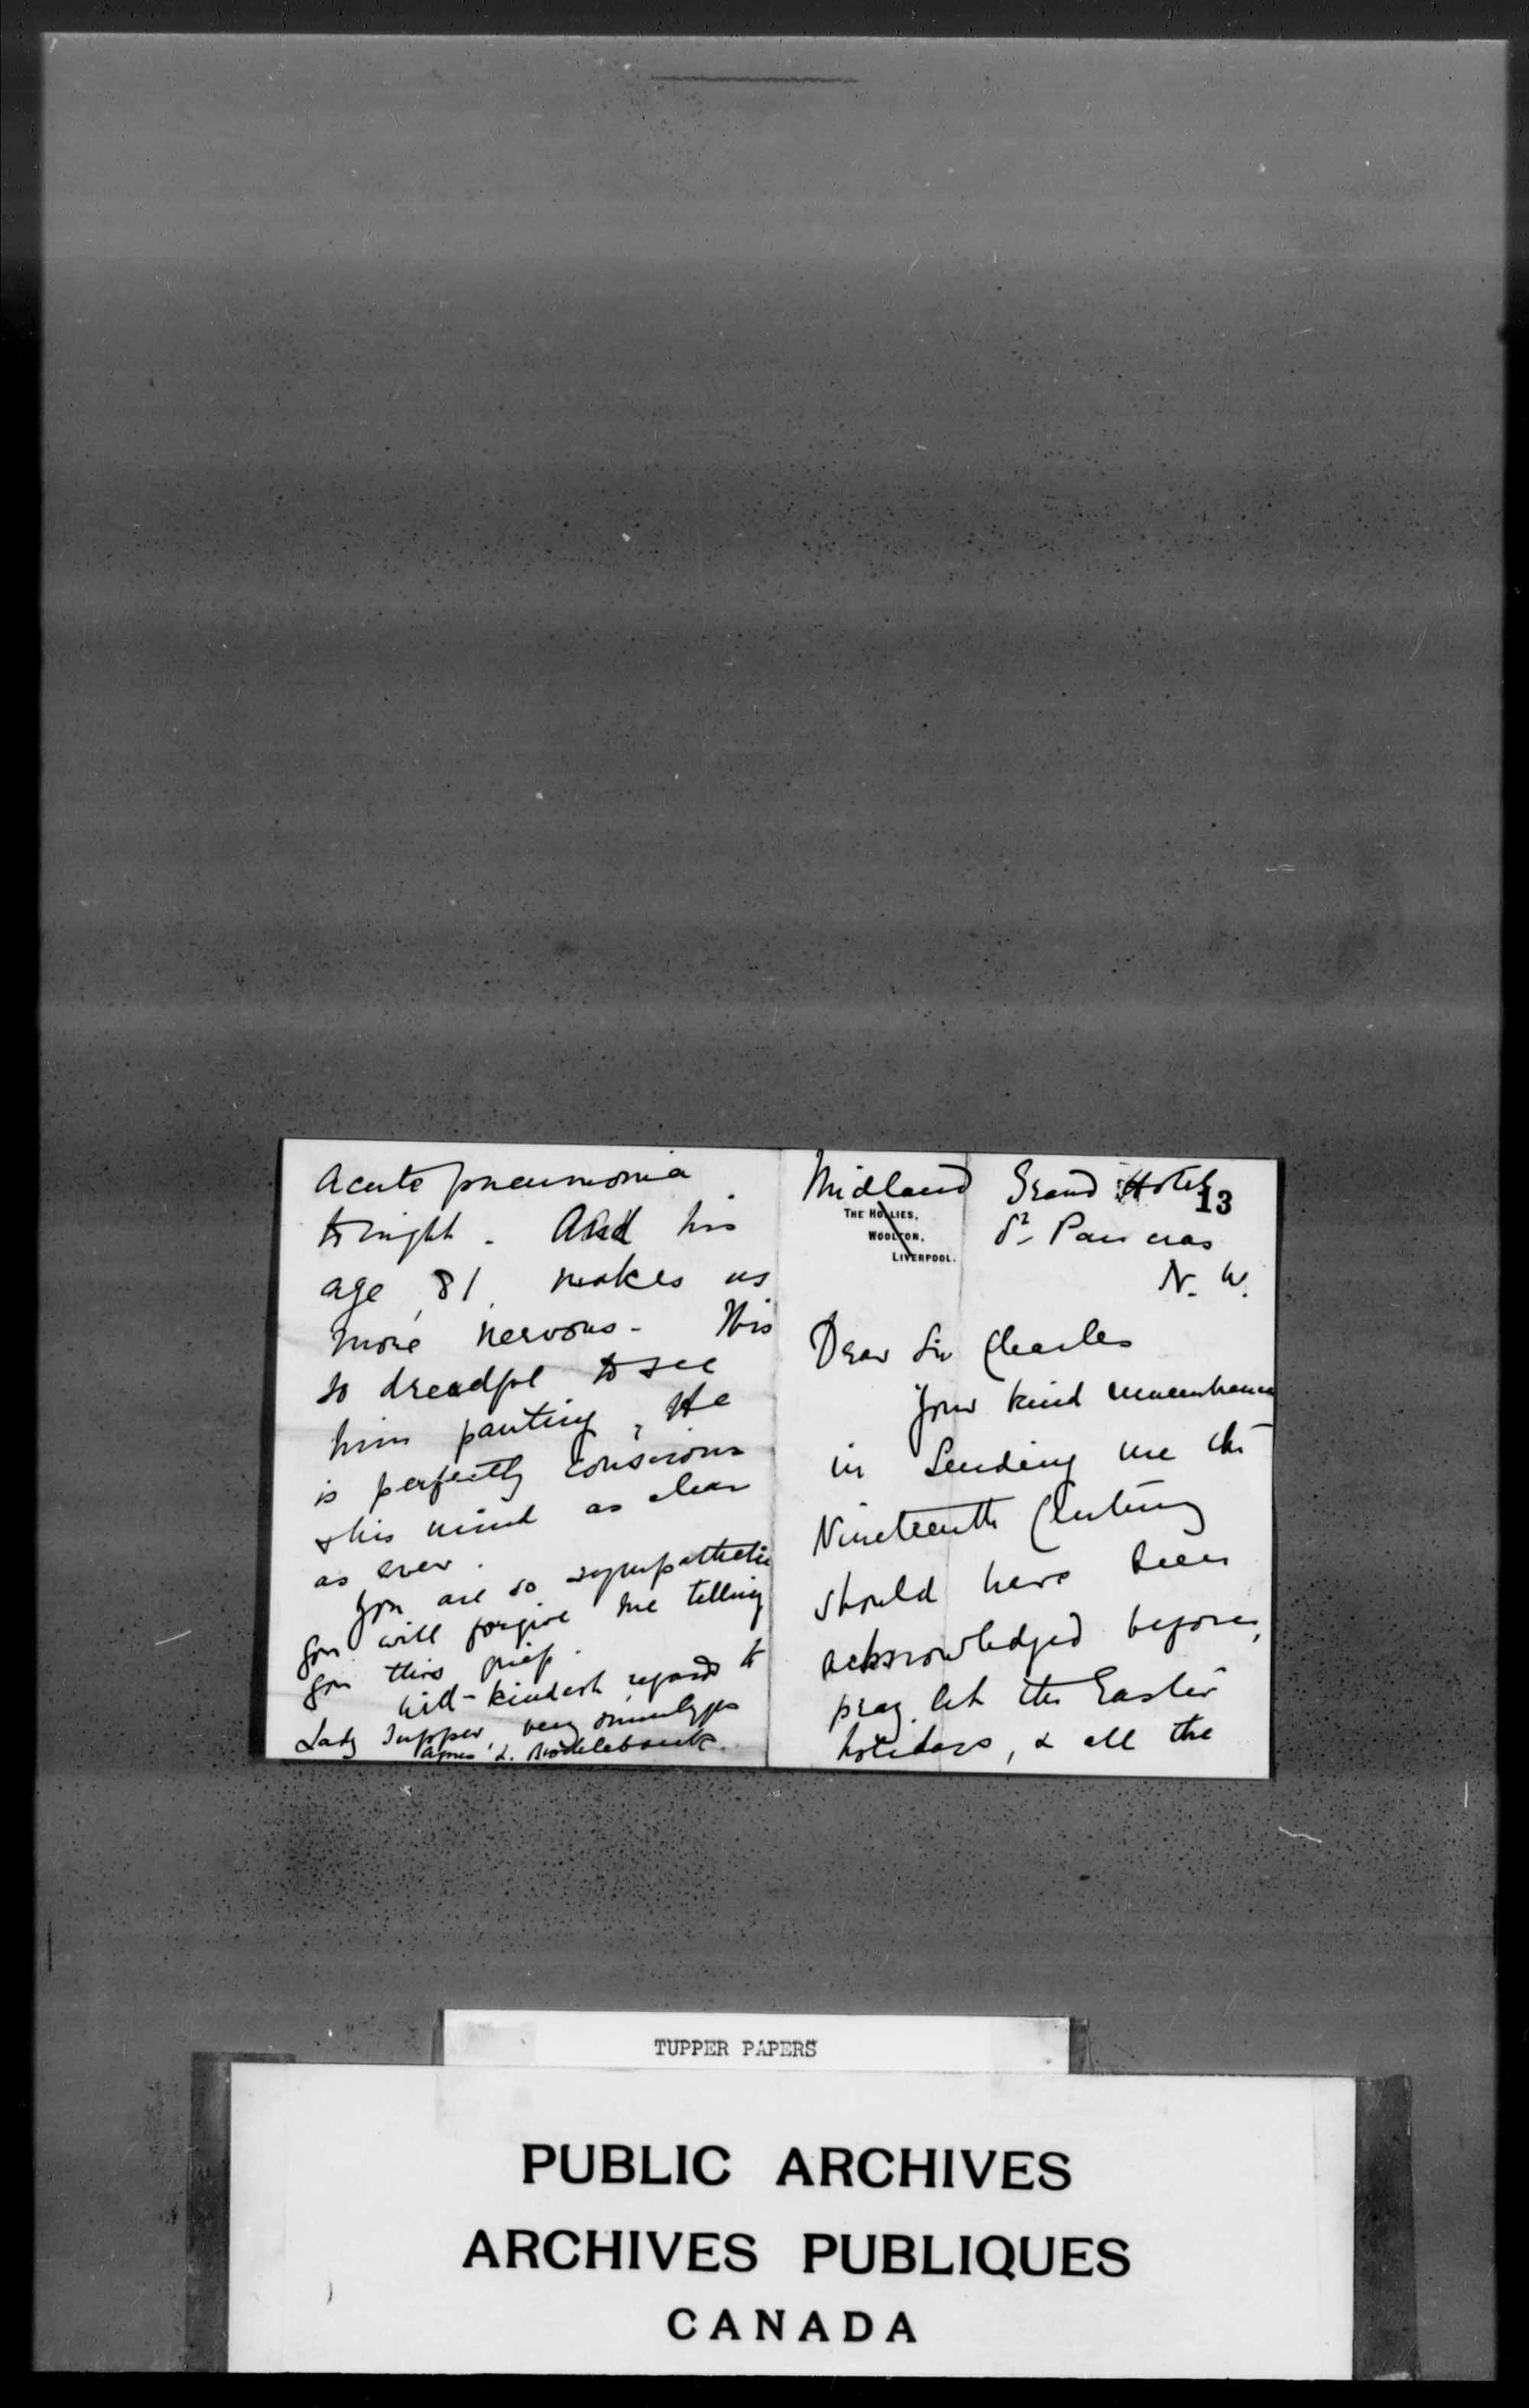 Acute pneumonia
tonight. And his
age, 81, makes us
more nervous - Tis
so dreadful to see
him panting, He
is perfectly conscious
& his mind as clear
as ever.
You are so sympathetic
you will forgive me telling
you this grief.
With kindest regards to
Lady Tupper, very sincerely yrs
Agnes L. Brocklebank.
Midland Grand Hotel
13
THE HOLLIES,
WOOLTON,
LIVERPOOL.
St Pancras
N. W.
Dear Sir Charles
Your kind remembrance
in sending me the
Nineteenth Century
should have been
acknowledged before,
pray let the Easter
holidays, & all the
TUPPER PAPERS
PUBLIC ARCHIVES
ARCHIVES PUBLIQUES
CANADA